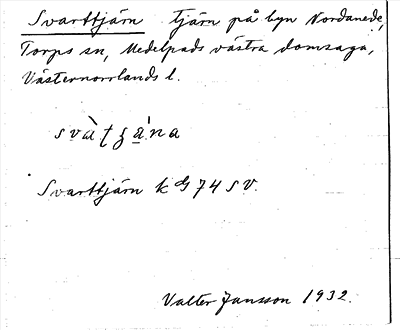 Svarttjärn tjärn på byn Nordanede,
Torps sn, Medelpads västra domsaga,
Västernorrlands l.
Svarttjärn k 74 SV.
Valter Jansson 1932.